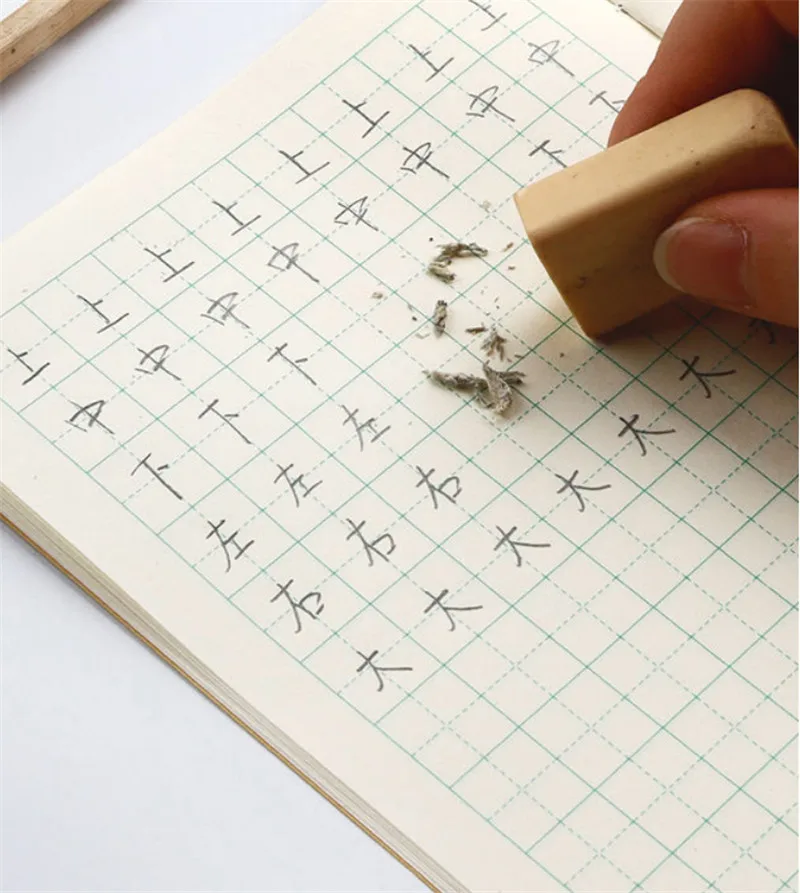 上上上上上上上上
中中中中中中中中
下下下下下
左左左
右右右
大大大大大大